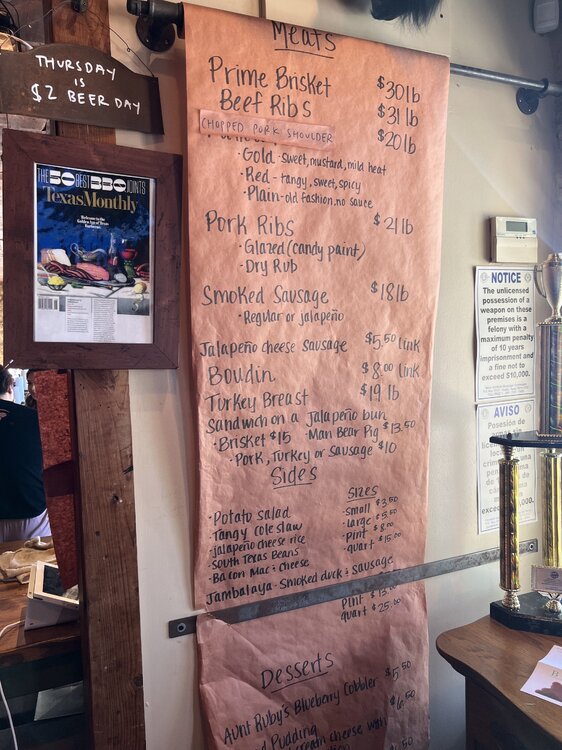 THURSDAY
IS
$2 BEER DAY
THE 50 BEST BBQ JOINTS
TexasMonthly
Welcome to the
Golden Age of Texas
Barbecue
Meats
Prime Brisket $30 lb
Beef Ribs $31 lb
CHOPPED PORK SHOULDER $20 lb
• Gold - sweet, mustard, mild heat
• Red - tangy, sweet, spicy
• Plain - old fashion, no sauce
Pork Ribs $21 lb
• Glazed (candy paint)
• Dry Rub
Smoked Sausage $18 lb
• Regular or jalapeño
Jalapeño cheese sausage $5.50 link
Boudin $8.00 link
Turkey Breast $19 lb
Sandwich on a Jalapeño bun
• Brisket $15 Man Bear Pig $13.50
• Pork, Turkey or Sausage $10
Sides
• Potato salad
• Tangy cole slaw
• jalapeño cheese rice
• South Texas Beans
• Bacon Mac & cheese
SIZES
• small $3.50
• large $5.50
Pint $8.00
quart $15.00
Jambalaya - Smoked duck & sausage
Pint
quart $25.00
Desserts
Aunt Ruby's Blueberry Cobbler $5.50
Pudding $6.50
cream cheese with
NOTICE
The unlicensed
possession of a
weapon on these
premises is a
felony with a
maximum penalty
of 10 years
imprisonment and
a fine not to
exceed $10,000.
AVISO
Posesión de